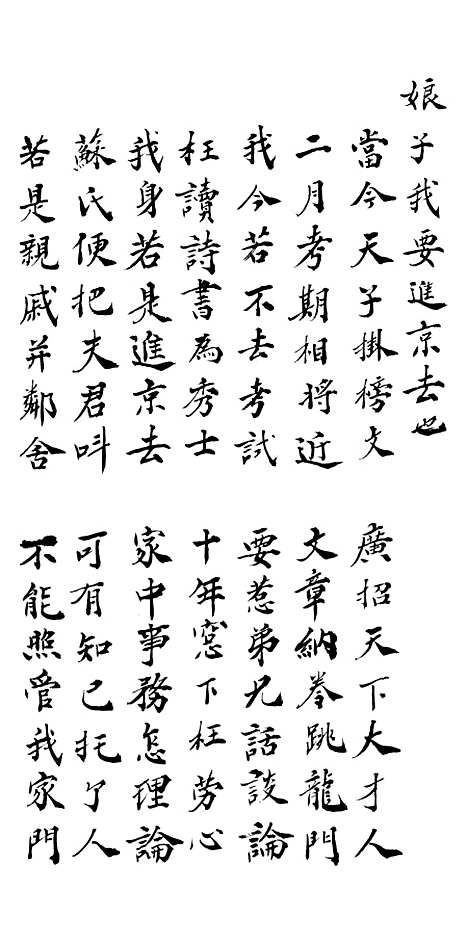 娘子我要進京去也
當今天子掛榜文
廣招天下大才人
二月考期相將近
文章納卷跳龍門
我今若不去考試
要惹弟兄話談論
枉讀詩書為秀士
十年窓下枉勞心
我身若是進京去
家中事務怎理論
蘇氏便把夫君叫
可有知己托了人
若是親戚并鄰舍
不能照管我家門